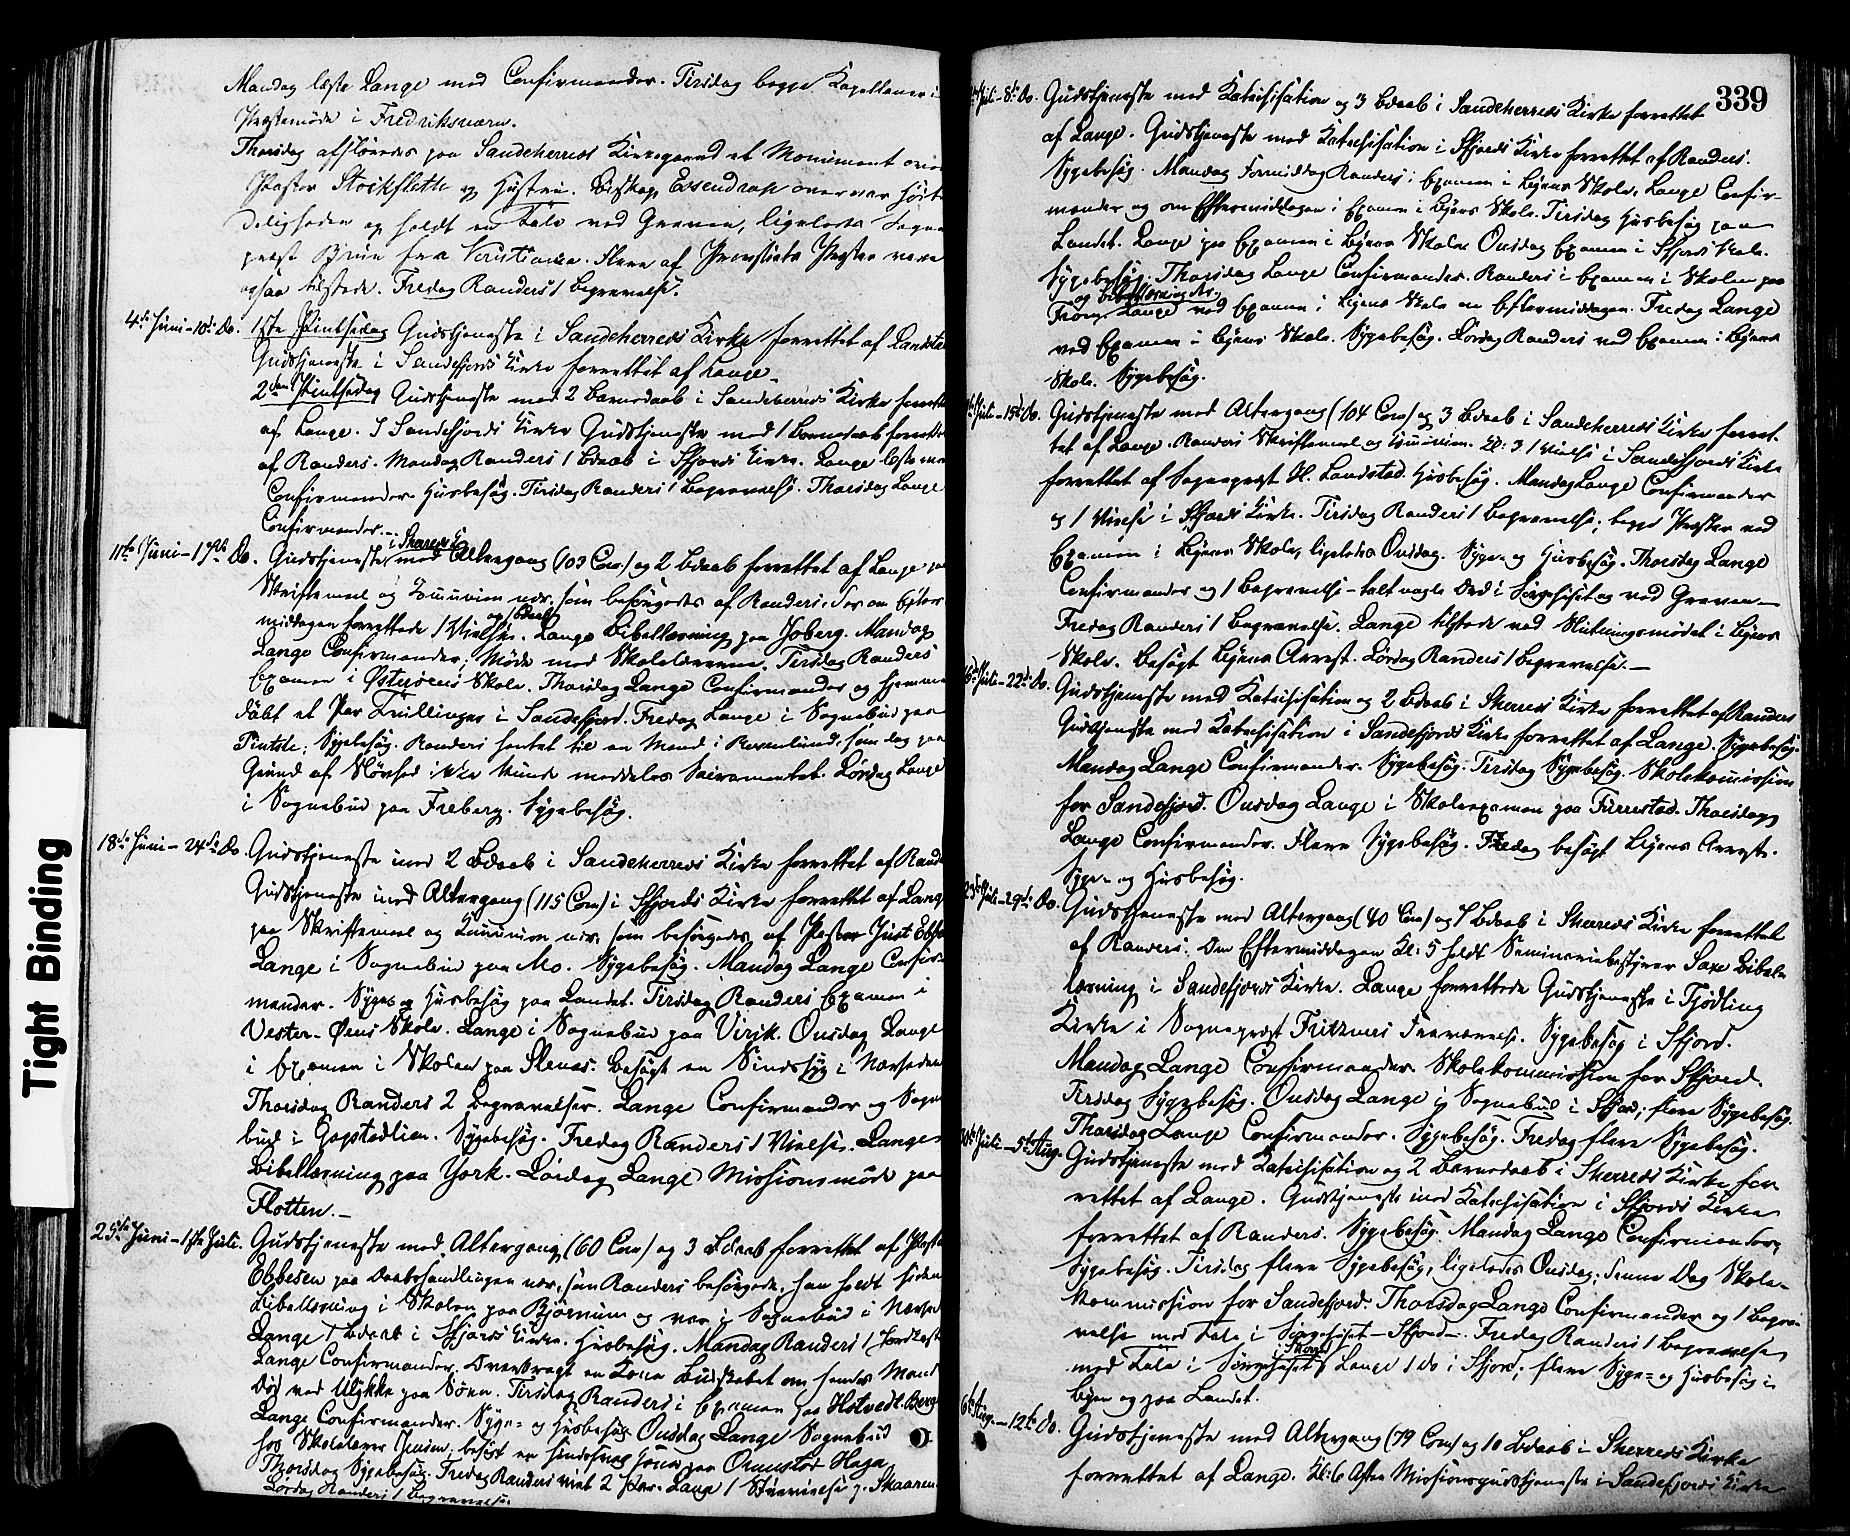 Mandag læste Lange med Confirmander. Tirsdag begge Kapellaner i
Præstemöde i Fredriksværn.
Thorsdag afslöredes paa Sandeherreds Kirkegaard et Monument over
Pastor Stockfleth og Hustru. Biskop Essendrop overvar Höiti-
deligheden og holdt en Tale ved Graven, ligeledes Sogne-
præst Bruun fra Kristiania. Flere af Provstiets Præster vare
ogsaa tilstede. Fredag Randers 1 Begravelse.
4de Juni-10de Do. 1ste Pintsedag Gudstjeneste i Sandeherreds Kirke forrettet af Landstad
Gudstjeneste i Sandefjords Kirke forrettet af Lange.
2den Pintsedag Gudstjeneste med 2 Barnedaab i Sandeherreds Kirke forrettet
af Lange. I Sandefjords Kirke Gudstjeneste med 1 Barnedaab forrettet
af Randers. Mandag Randers 1 Bdaab i Sfjords Kirke. Lange læste med
Confirmander. Husbesög. Tirsdag Randers 1 Begravelse. Thorsdag Lange
Confirmander.
11te Juni-17de Do. Gudstjeneste i Sharreds K. med Altergang (103 Com) og 2 Bdaab forrettet af Lange
Skriftemaal og Communion nær, som besörgedes af Randers, der om Efter-
middagen forrettede 1 Vielse og 1 Bdaab. Lange Bibellæsning paa Joberg. Mandag
Lange Confirmander; Möde med Skolelærerne. Tirsdag Randers
Examen i Österöens Skole. Thorsdag Lange Confirmander og hjemme
döbt et Par Tvillinger i Sandefjord. Fredag Lange i Sognebud paa
Sygebesög. Randers hentet til en Mand i som dog paa
Grund af Slövhed ikke kunde meddeles Sacramentet. Lördag Lange
i Sognebud paa Freberg. Sygebesög.
18de Juni-24de Do. Gudstjeneste med 2 Bdaab i Sandeherreds Kirke forrettet af Randers
Gudstjeneste med Altergang (115 Com) i Sfjords Kirke forrettet af Lange
paa Skriftemaal og Communion nær, som besörgedes af Pastor Just Ebbesen
Lange i Sognebud paa Mo. Sygebesög. Mandag Lange Confir-
mander. Syge- og Husbesög paa Landet. Tirsdag Randers Examen i
Vester-Öens Skole. Lange i Sognebud paa Virik. Onsdag Lange
i Examen i Skolen paa Stenæs. Besögt en Sindssyg i
Thorsdag Randers 2 Begravelser. Lange Confirmander og Sogne-
bud i Gogstadlien. Sygebesög. Fredag Randers 1 Vielse. Lange
Bibellæsning paa York. Lördag Lange Missionsmöde paa
Flotten.
25de Juni-1ste Juli. Gudstjeneste med Altergang (60 Com) og 3 Bdaab forrettet af Pastor
Ebbesen paa Daabshandlingen nær, som Randers besörgede, han holdt siden
Bibellæsning i Skolen paa Bjørnum og var i Sognebud i
Lange 1 Bdaab i Sfjords Kirke. Husbesög. Mandag Randers 1 Jordfæst.
Lange Confirmander. Overbragt en Kone Budskabet om hendes Mands
Död ved Ulykke paa Söen. Tirsdag Randers i Examen paa Hotvedt-Berg
Lange Confirmander. Syge- og Husbesög. Onsdag Lange Sognebud
hos Skolelærer Jensen; besögt en sindssyg Kone paa Ormestad Hage
Thorsdag Sygebesög. Fredag Randers viet 2 Par. Lange 1 Skaaren
Lördag Randers 1 Begravelse.
339
Juli-8de Do. Gudstjeneste med Katechisation og 3 Bdaab i Sandeherreds Kirke forrettet
af Lange. Gudstjeneste med Katechisation i Sfjords Kirke forrettet af Randers.
Sygebesög. Mandag Formiddag Randers i Examen i Byens Skole, Lange Confir-
mander og om Eftermiddagen i Examen i Byens Skole. Tirsdag Husbesög paa
Landet. Lange paa Examen i Byens Skole. Onsdag Examen i Sfjords Skole.
Sygebesög. Thorsdag Lange Confirmander. Randers i Examen i Skolen paa
og Bibellæsning der.
Lange ved Examen i Byens Skole om Eftermiddagen. Fredag Lange
ved Examen i Byens Skole. Sygebesög. Lördag Randers ved Examen i Byens
Skole. Sygebesög.
Juli-15de Do. Gudstjeneste med Altergang (104 Com) og 3 Bdaab i Sandeherreds Kirke forret-
tet af Lange. Randers Skriftemaal og Communion. Kl: 3 1 Vielse i Sandefjords Kirke
forrettet af Sognepræst H. Landstad. Husbesög. Mandag Lange Confirmander
og 1 Vielse i Sfjords Kirke. Tirsdag Randers 1 Begravelse; begge Præster ved
Examen i Byens Skole, ligeledes Onsdag. Syge- og Husbesög. Thorsdag Lange
Confirmander og 1 Begravelse - talt nogle Ord i Sörgehuset og ved Graven -
Fredag Randers 1 Begravelse. Lange tilstede ved Slutningsmödet i Byens
Skole. Besögt Byens Arrest. Lördag Randers 1 Begravelse. -
16de Juli-22de Do. Gudstjeneste med Katechisation og 2 Bdaab i Sherreds Kirke forrettet af Randers
Gudstjeneste med Katechisation i Sandefjords Kirke forrettet af Lange. Sygebesög.
Mandag Lange Confirmander. Sygebesög. Tirsdag Sygebesög. Skolekommission
for Sandefjord. Onsdag Lange i Skoleexamen paa Furrestad. Thorsdag
Lange Confirmander. Flere Sygebesög. Fredag besögt Byens Arrest.
Syge- og Husbesög.
23de Juli-29de Do. Gudstjeneste med Altergang (40 Com) og 7 Bdaab i Sherreds Kirke forrettet
af Randers. Om Eftermiddagen Kl: 5 holdt Seminariebestyrer Saxe Bibel-
læsning i Sandefjords Kirke. Lange forrettede Gudstjeneste i Tjödling
Kirke i Sognepræst Fritzners Fraværelse. Sygebesög i Sfjord.
Mandag Lange Confirmander. Skolekommission for Sfjord.
Tirsdag Sygebesög. Onsdag Lange i Sognebud i Sfjord; flere Sygebesög.
Thorsdag Lange Confirmander. Sygebesög. Fredag flere Sygebesög.
30te Juli-5te Aug. Gudstjeneste med Katechisation og 2 Barnedaab i Sherreds Kirke for-
rettet af Lange. Gudstjeneste med Katechisation i Sfjords Kirke
forrettet af Randers. Sygebesög. Mandag Lange Confirmander,
Sygebesög. Tirsdag flere Sygebesög, ligeledes Onsdag; denne Dag Skole-
kommission for Sandefjord. Thorsdag Lange Confirmander og 1 Begra-
velse med Tale i Sörgehuset - Sfjord -. Fredag Randers 1 Begravelse
med Tale i Sörgehuset Lange 1 do i Sfjord; flere Syge- og Husbesög i
Byen og paa Landet.
6te Aug.-12te Do. Gudstjeneste med Altergang (79 Com) og 10 Bdaab i Sherreds Kirke
forrettet af Lange. Kl: 6 Aften Missionsgudstjeneste i Sandefjords Kirke
Tight Binding